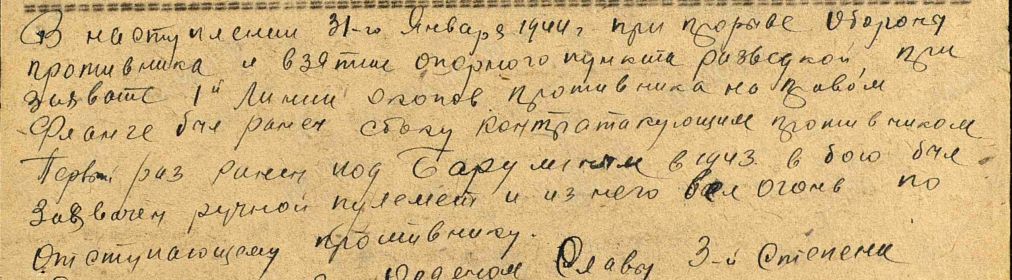 В наступлении 31-го Января 1944 г при прорыве Обороны
противника и взятие опорного пункта разведкой при
захвате 1й Линии окопов противника на правом
Фланге был ранен сбоку контратакующим противником
Первый раз ранен под в 1943 в бою был
захвачен ручной пулемет и из него вел огонь по
отступающему противнику.
Орденом Славы 3-й Степени